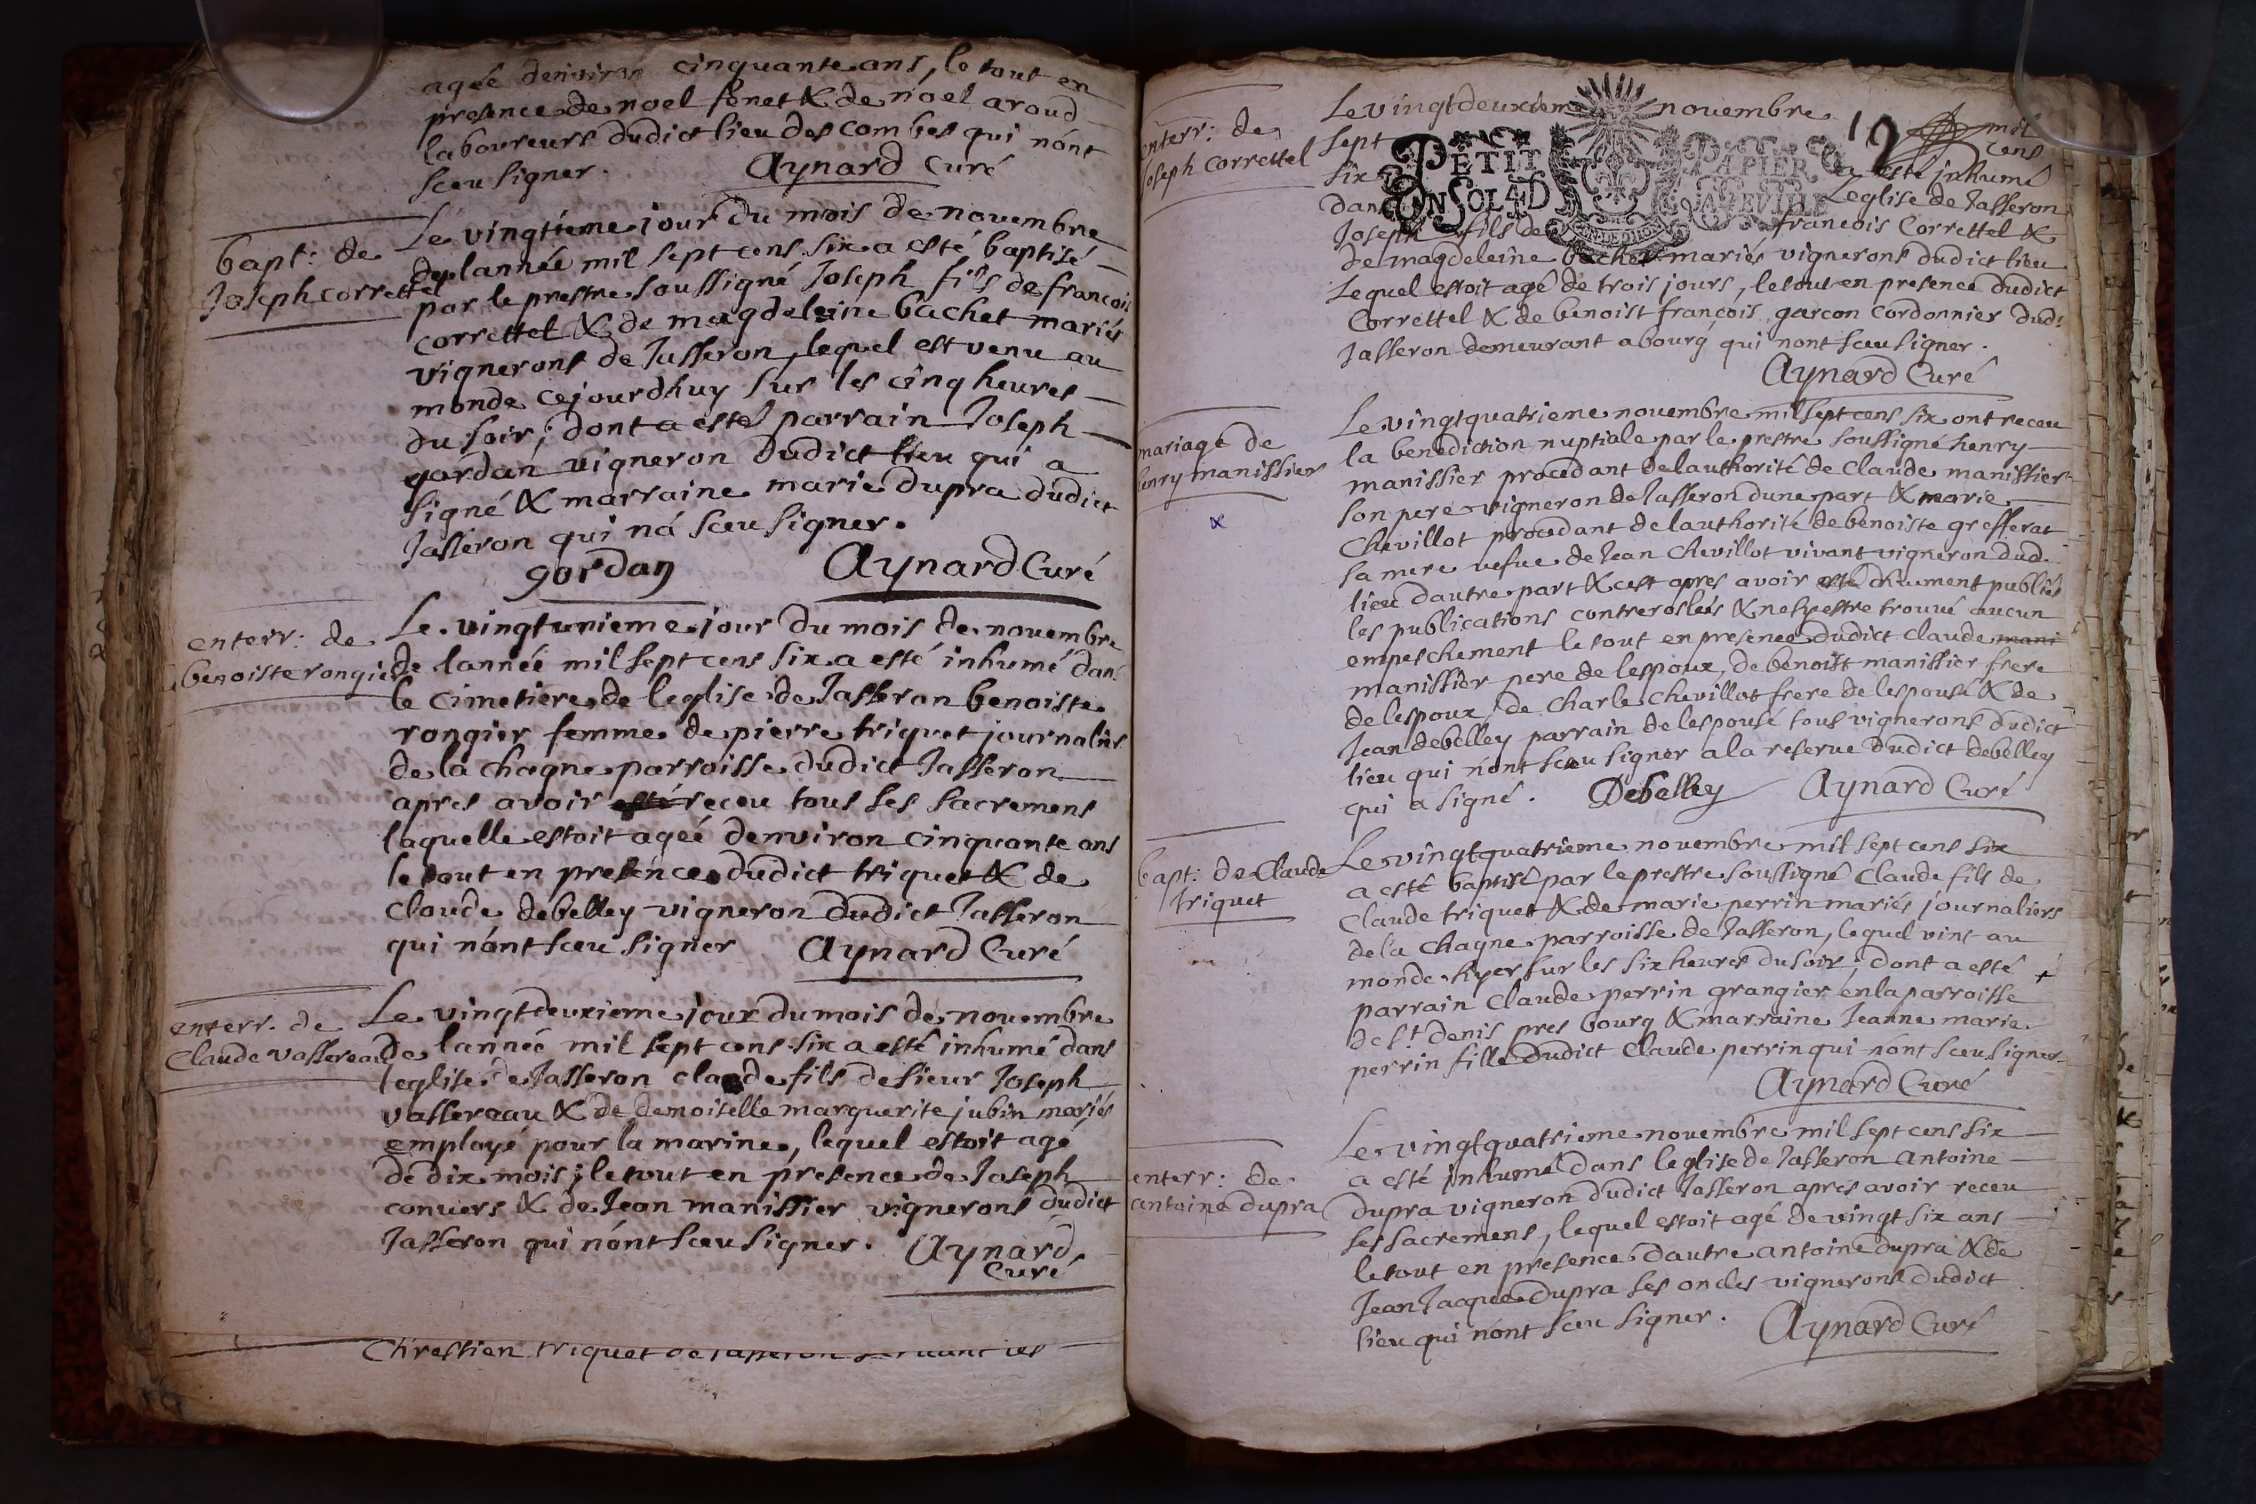 agée denviron cinquante ans, le tout en
presence de noel fonet & de noel aroud
laboureurs dudict lieu des combes qui nónt
sceu signer. Aynard Curé
bapt: de
Joseph correttel
Le vingtiéme jour du mois de novembre
de lannée mil sept cens six a esté baptisé
par le prestre soussigné Joseph fils de francois
correttel & de magdeleine bachet mariés
vignerons de Jasseron, lequel est venu au
monde cejourdhuy sur les cinq heures
du soir, dont a esté parrain Joseph
gordan vigneron dudict lieu qui a
signé & marraine marie dupra dudict
Jasseron qui ná sceu signer.
gordan Aynard Curé
enterr: de
benoiste rongier
Le vingtunieme jour du mois de novembre
de lannée mil sept cens six a esté inhumé dans
le cimetiere de leglise de Jasseron benoiste
rongier femme de pierre triquet journalier
de la chagne parroisse dudict Jasseron
apres avoir esté receu tous ses sacremens
laquelle estoit agée denviron cinquante ans
le tout en presence dudict triquet & de
claude debelley vigneron dudict Jasseron
qui nónt sceu signer Aynard Curé
enterr. de
Claude vassereau
Le vingtdeuxieme jour du mois de novembre
de lannée mil sept cens six a esté inhumé dans
leglise de Jasseron claude fils de sieur Joseph
vassereau & de demoiselle marguerite jubin mariés
employé pour la marine, lequel estoit agé
de dix mois; le tout en presence de Joseph
convers & de Jean manissier vignerons dudict
Jasseron qui nónt sceu signer. Aynard
Curé
Chrestien triquet de Jasseron
enterr: de
Joseph correttel
Le vingtdeuxieme novembre mil
sept cens
six a esté inhumé
dans leglise de Jasseron
Joseph fils de francois Correttel &
de magdeleine bachet mariés vignerons dudict lieu
Lequel estoit agé de trois jours, le tout en presence dudict
Correttel & de benoist françois garcon cordonnier dud:
Jasseron demeurant a bourg qui nont sceu signer.
Aynard Curé
PETIT PAPIER
ON SOL 4 D
12
mariage de
henry manissier
Le vingtquatrieme novembre mil sept cens six ont receu
la benediction nuptiale par le prestre soussigné henry
manissier procedant de lauthorité de Claude manissier
son pere vigneron de Jasseron dune part & marie
Chevillot procedant de lauthorité de benoiste grefferat
sa mere vefue de Jean Chevillot vivant vigneron dud.
lieu dautre part & cest apres avoir esté duement publiés
les publications & estre trouvé aucun
empeschement le tout en presence dudict claude mani
manissier pere de lespoux, de benoist manissier frere
de lespoux, de Charle Chevillot frere de lespouse & de
Jean debelley parrain de lespouse tous vignerons dudict
lieu qui nónt sceu signer a la reserve dudict debelley
qui a signé. Debelley Aynard Curé
bapt: de Claude
triquet
Le vingtquatrieme novembre mil sept cens six
a esté baptisé par le prestre soussigné Claude fils de
Claude triquet & de marie perrin mariés journaliers
de la chagne parroisse de Jasseron, lequel vint au
monde hyer sur les six heures du soir; dont a esté
parrain Claude perrin grangier en la parroisse
de st. denis pres bourg & marraine Jeanne marie
perrin fille dudict Claude perrin qui nónt sceu signer
Aynard Curé
enterr: de
antoine dupra
Le vingtquatrieme novembre mil sept cens six
a esté inhumé dans leglise de Jasseron antoine
dupra vigneron dudict Jasseron apres avoir receu
ses sacremens, lequel estoit agé de vingt six ans
le tout en présence dautre antoine dupra & de
Jean Jacque dupra ses oncles vignerons dudict
lieu qui nónt sceu signer. Aynard Curé